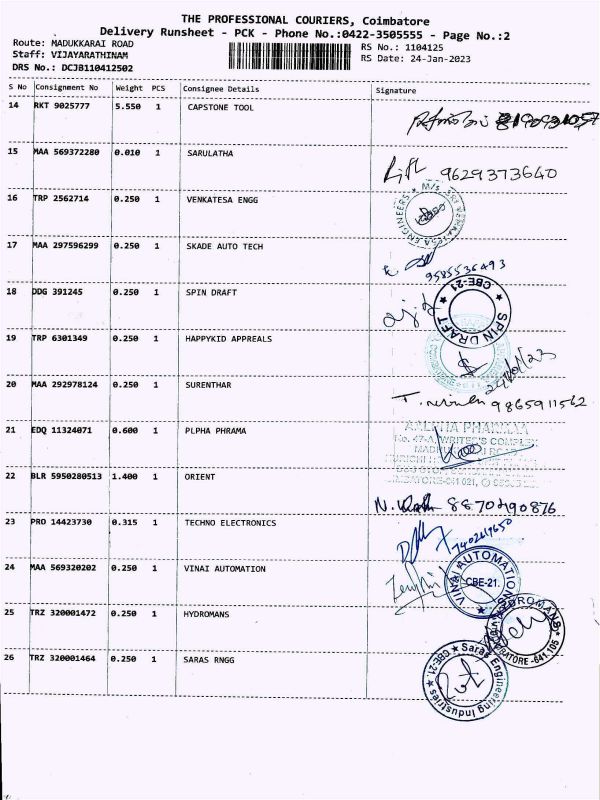 THE PROFESSIONAL COURIERS, Coimbatore
Delivery Runsheet - PCK - Phone No.:0422-3505555 - Page No.:2
Route: MADUKKARAI ROAD
Staff: VIJAYARATHINAM
DRS No.: DCJB110412502
RS No.: 1104125
RS Date: 24-Jan-2023
S No Consignment No Weight PCS Consignee Details Signature
14 RKT 9025777 5.550 1 CAPSTONE TOOL
15 MAA 569372280 0.010 1 SARULATHA
9629373640
16 TRP 2562714 0.250 1 VENKATESA ENGG
17 MAA 297596299 0.250 1 SKADE AUTO TECH
9585536493
18 DDG 391245 0.250 1 SPIN DRAFT
SPIN DRAFT CBE-21
19 TRP 6301349 0.250 1 HAPPYKID APPREALS
20 MAA 292978124 0.250 1 SURENTHAR
9865911562
21 EDQ 11324071 0.600 1 PLPHA PHRAMA
22 BLR 5950280513 1.400 1 ORIENT
8870490876
23 PRO 14423730 0.315 1 TECHNO ELECTRONICS
24 MAA 569320202 0.250 1 VINAI AUTOMATION
VINAI AUTOMATION CBE-21.
25 TRZ 320001472 0.250 1 HYDROMANS
26 TRZ 320001464 0.250 1 SARAS RNGG
Saras Engineering Industries CBE-21.